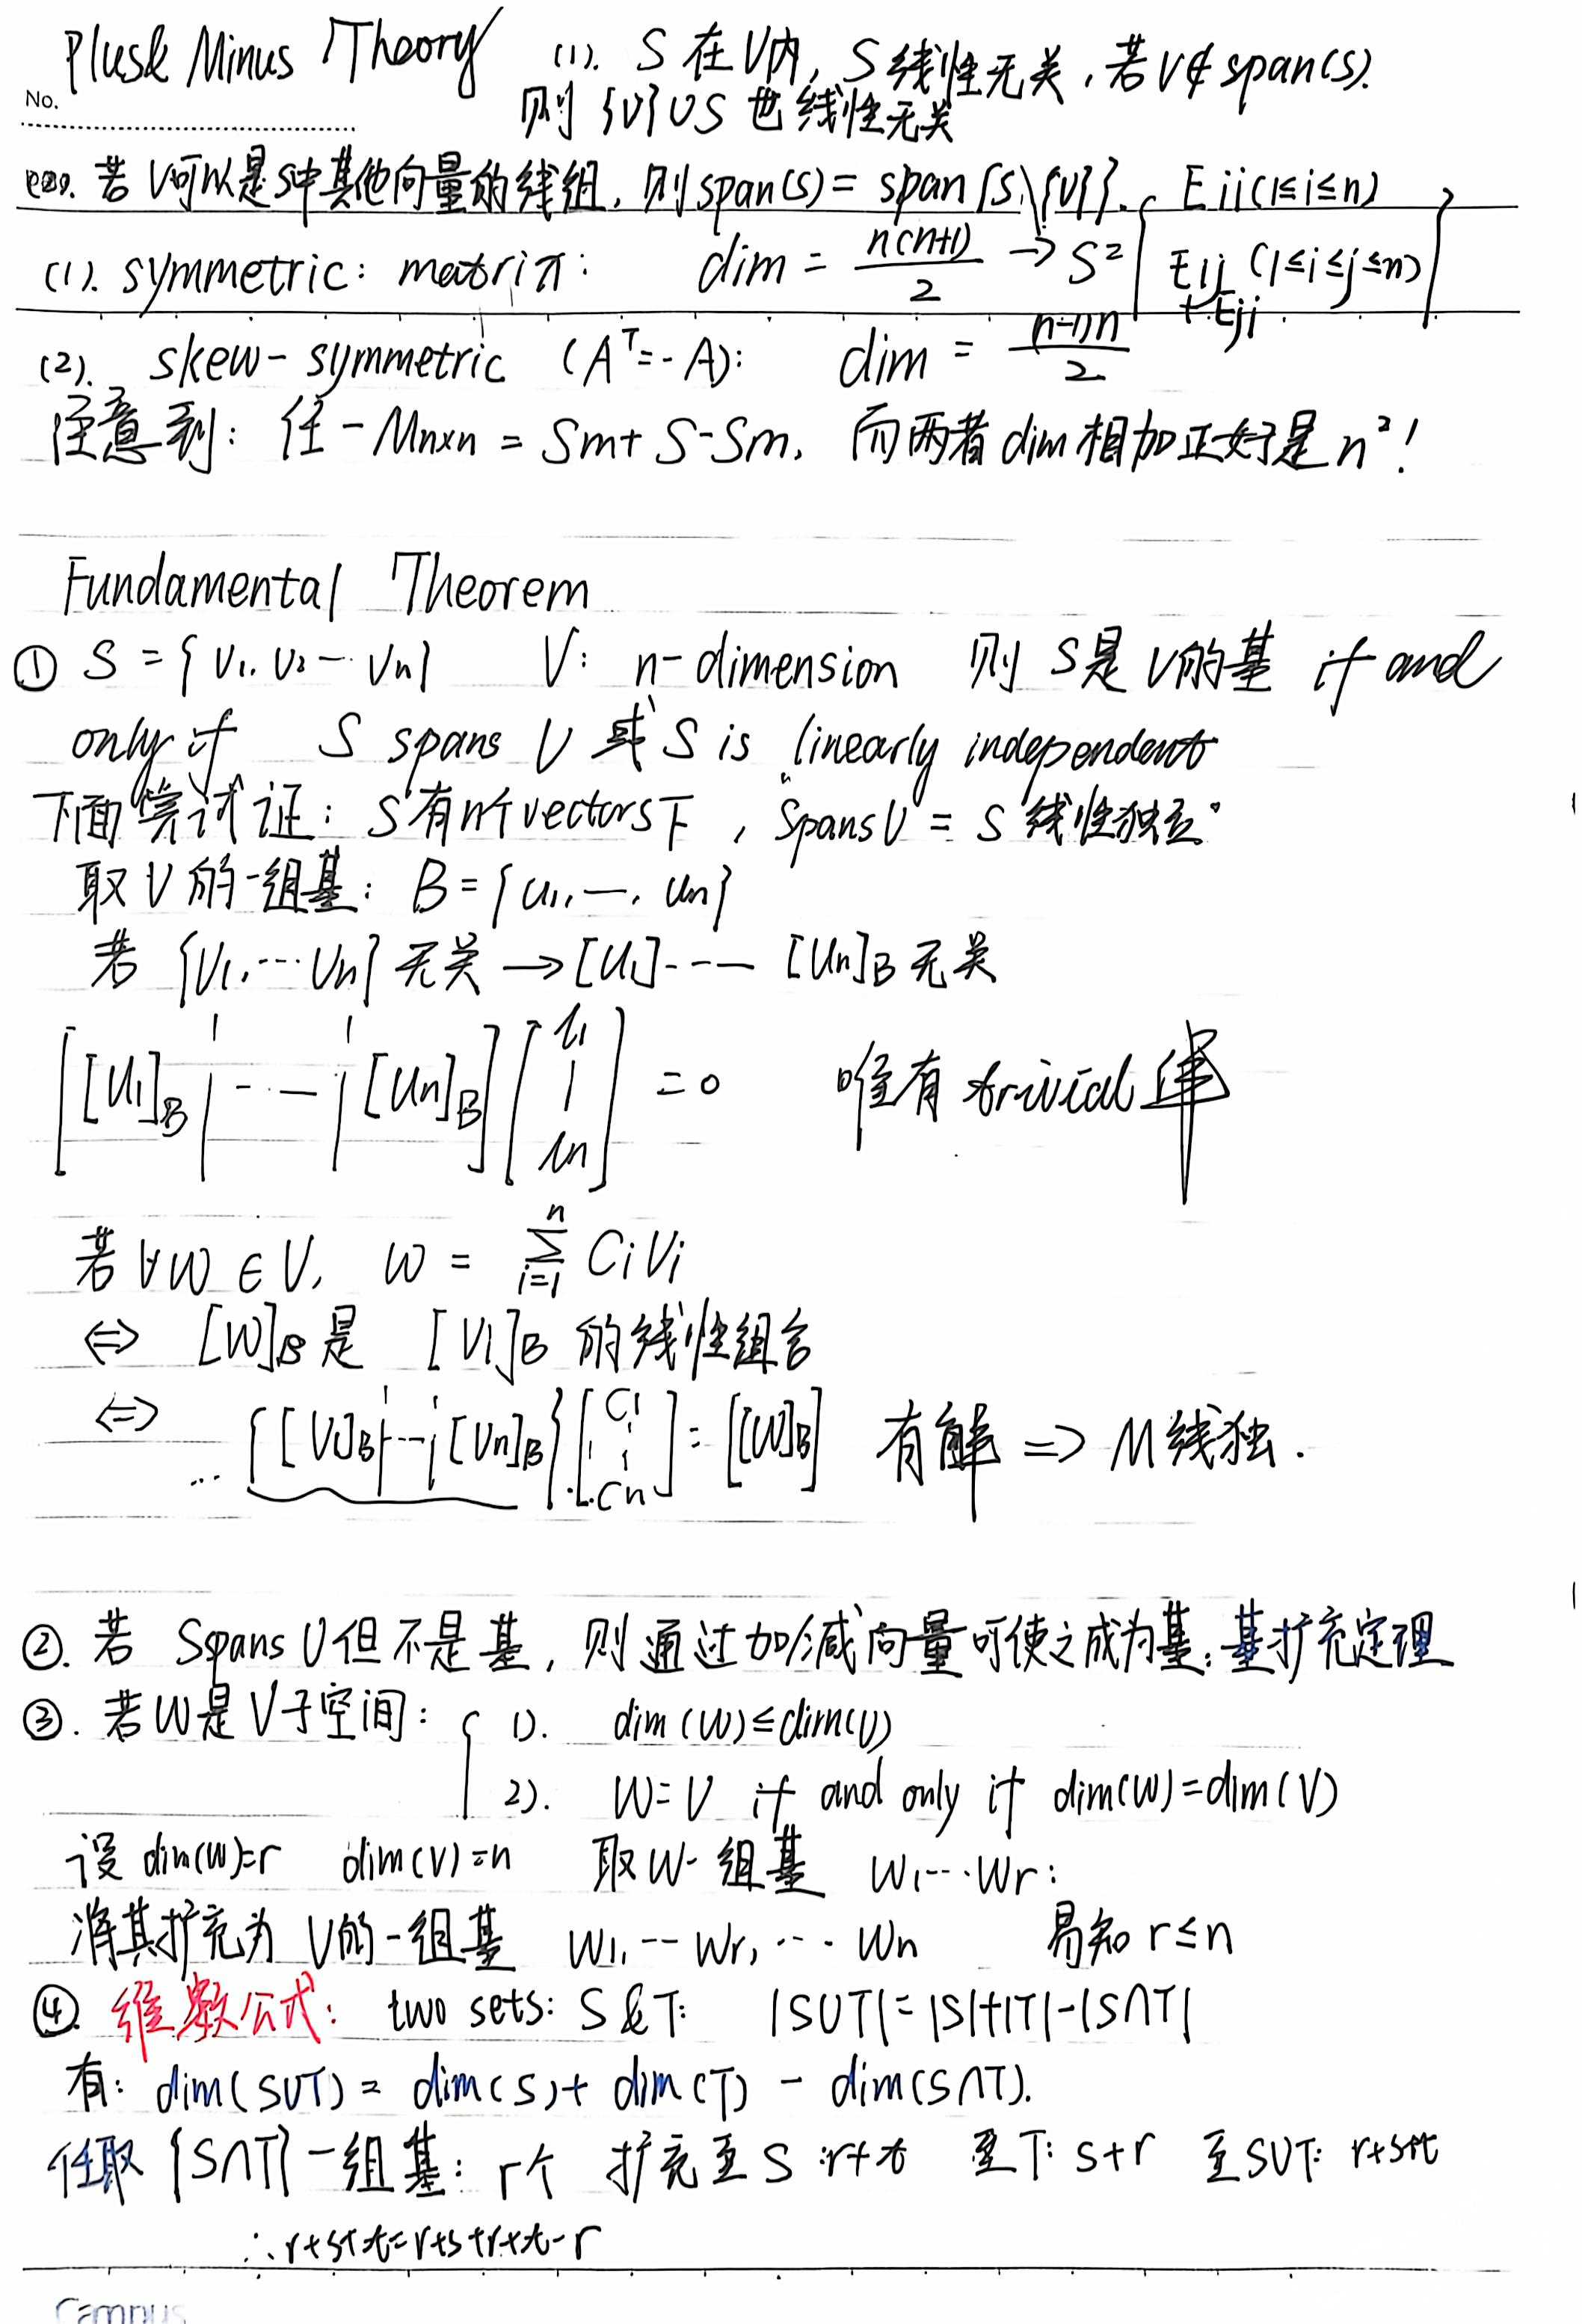 Plus & Minus Theory (1). S 在 V内, S 线性无关, 若 V∉span(S).
No.
则 {V}∪S 也线性无关
若 V可以是S中其他向量的线组, 则 span(S) = span{S\{V}}.
(1). symmetric: matrix: dim = n(n+1)/2 → S² { Eii (1≤i≤n)
Eij (1≤i≤j≤n) }
+Eji
(2). skew-symmetric (Aᵀ=-A): dim = (n-1)n/2
注意到: 任一 Mn×n = Sm + S-Sm, 而两者 dim 相加正好是 n²!
Fundamental Theorem
① S = {V1, V2 ... Vn} V: n-dimension 则 S是 V的基 if and
only if S spans V 或 S is linearly independent
下面尝试证: S有n个vectors下, "Spans V = S 线性独立"
取 V 的一组基: B = {u1, —, un}
若 {V1, ... Vn} 无关 → [U1] ---- [Un]B 无关
[ [U1]B | -- — | [Un]B ] [ l1 | ln ] = 0 唯有 trivial 解
若 ∀W ∈ V, W = Σ(i=1→n) CiVi
⇔ [W]B 是 [Vi]B 的线性组合
⇔ { [V1]B ¦---¦ [Vn]B } [ C1 ⋮ Cn ] = [[W]B] 有解 => M线独.
②. 若 Spans V 但不是基, 则通过加/减向量可使之成为基: 基扩充定理
③. 若 W是 V子空间: { 1). dim(W)≤dim(V)
2). W=V if and only if dim(W)=dim(V)
设 dim(W)=r dim(V)=n 取W一组基 W1...Wr:
将其扩充为 V的一组基 W1, -- Wr, ... Wn 易知 r≤n
④ 维数公式: two sets: S & T: |S∪T| = |S|+|T|-|S∩T|
有: dim(S∪T) = dim(S) + dim(T) - dim(S∩T).
任取 {S∩T} 一组基: r个 扩充至 S: r+t 至T: s+r 至S∪T: r+s+t
∴ r+s+t = r+s+r+t-r
Campus